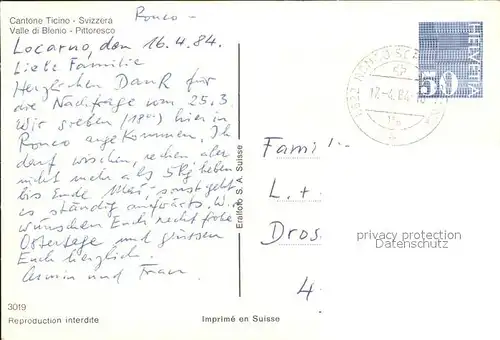 Cantone Ticino - Svizzera
Valle di Blenio - Pittoresco
Ronco -
Locarno, den 16.4.84.
Liebe Familie
Herzlichen Dank für
die Nachfrage vom 25.3.
Wir sieben hier in
Ronco angekommen. Ich
darf wischen, rechen aber
nicht mehr als 5 kg heben
bis Ende Mai, sonst geht
es ständig aufwärts. Wir
wünschen Euch recht frohe
Ostertage und grüssen
Euch herzlich.
Armin und Frau
3019
Reproduction interdite
Imprimé en Suisse
Eralfoto S. A. Suisse
HELVETIA
50
Famil
L. +
Dros
4
privacy protection
Datenschutz